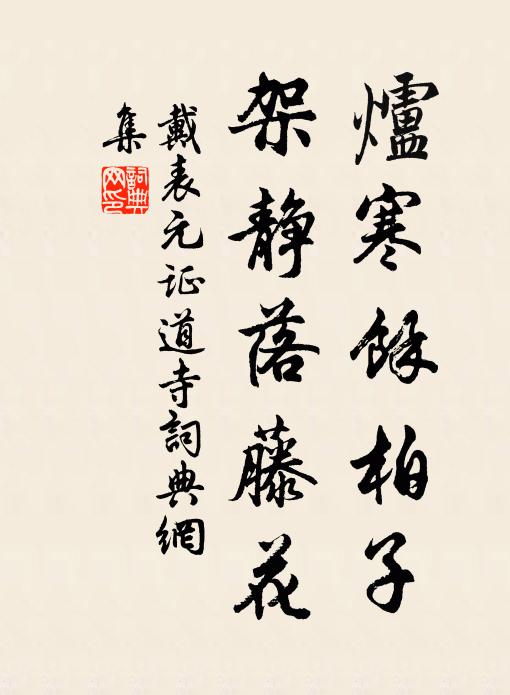 爐寒餘柏子
架静落藤花
戴表元证道寺詞典網
集
詞典
网印